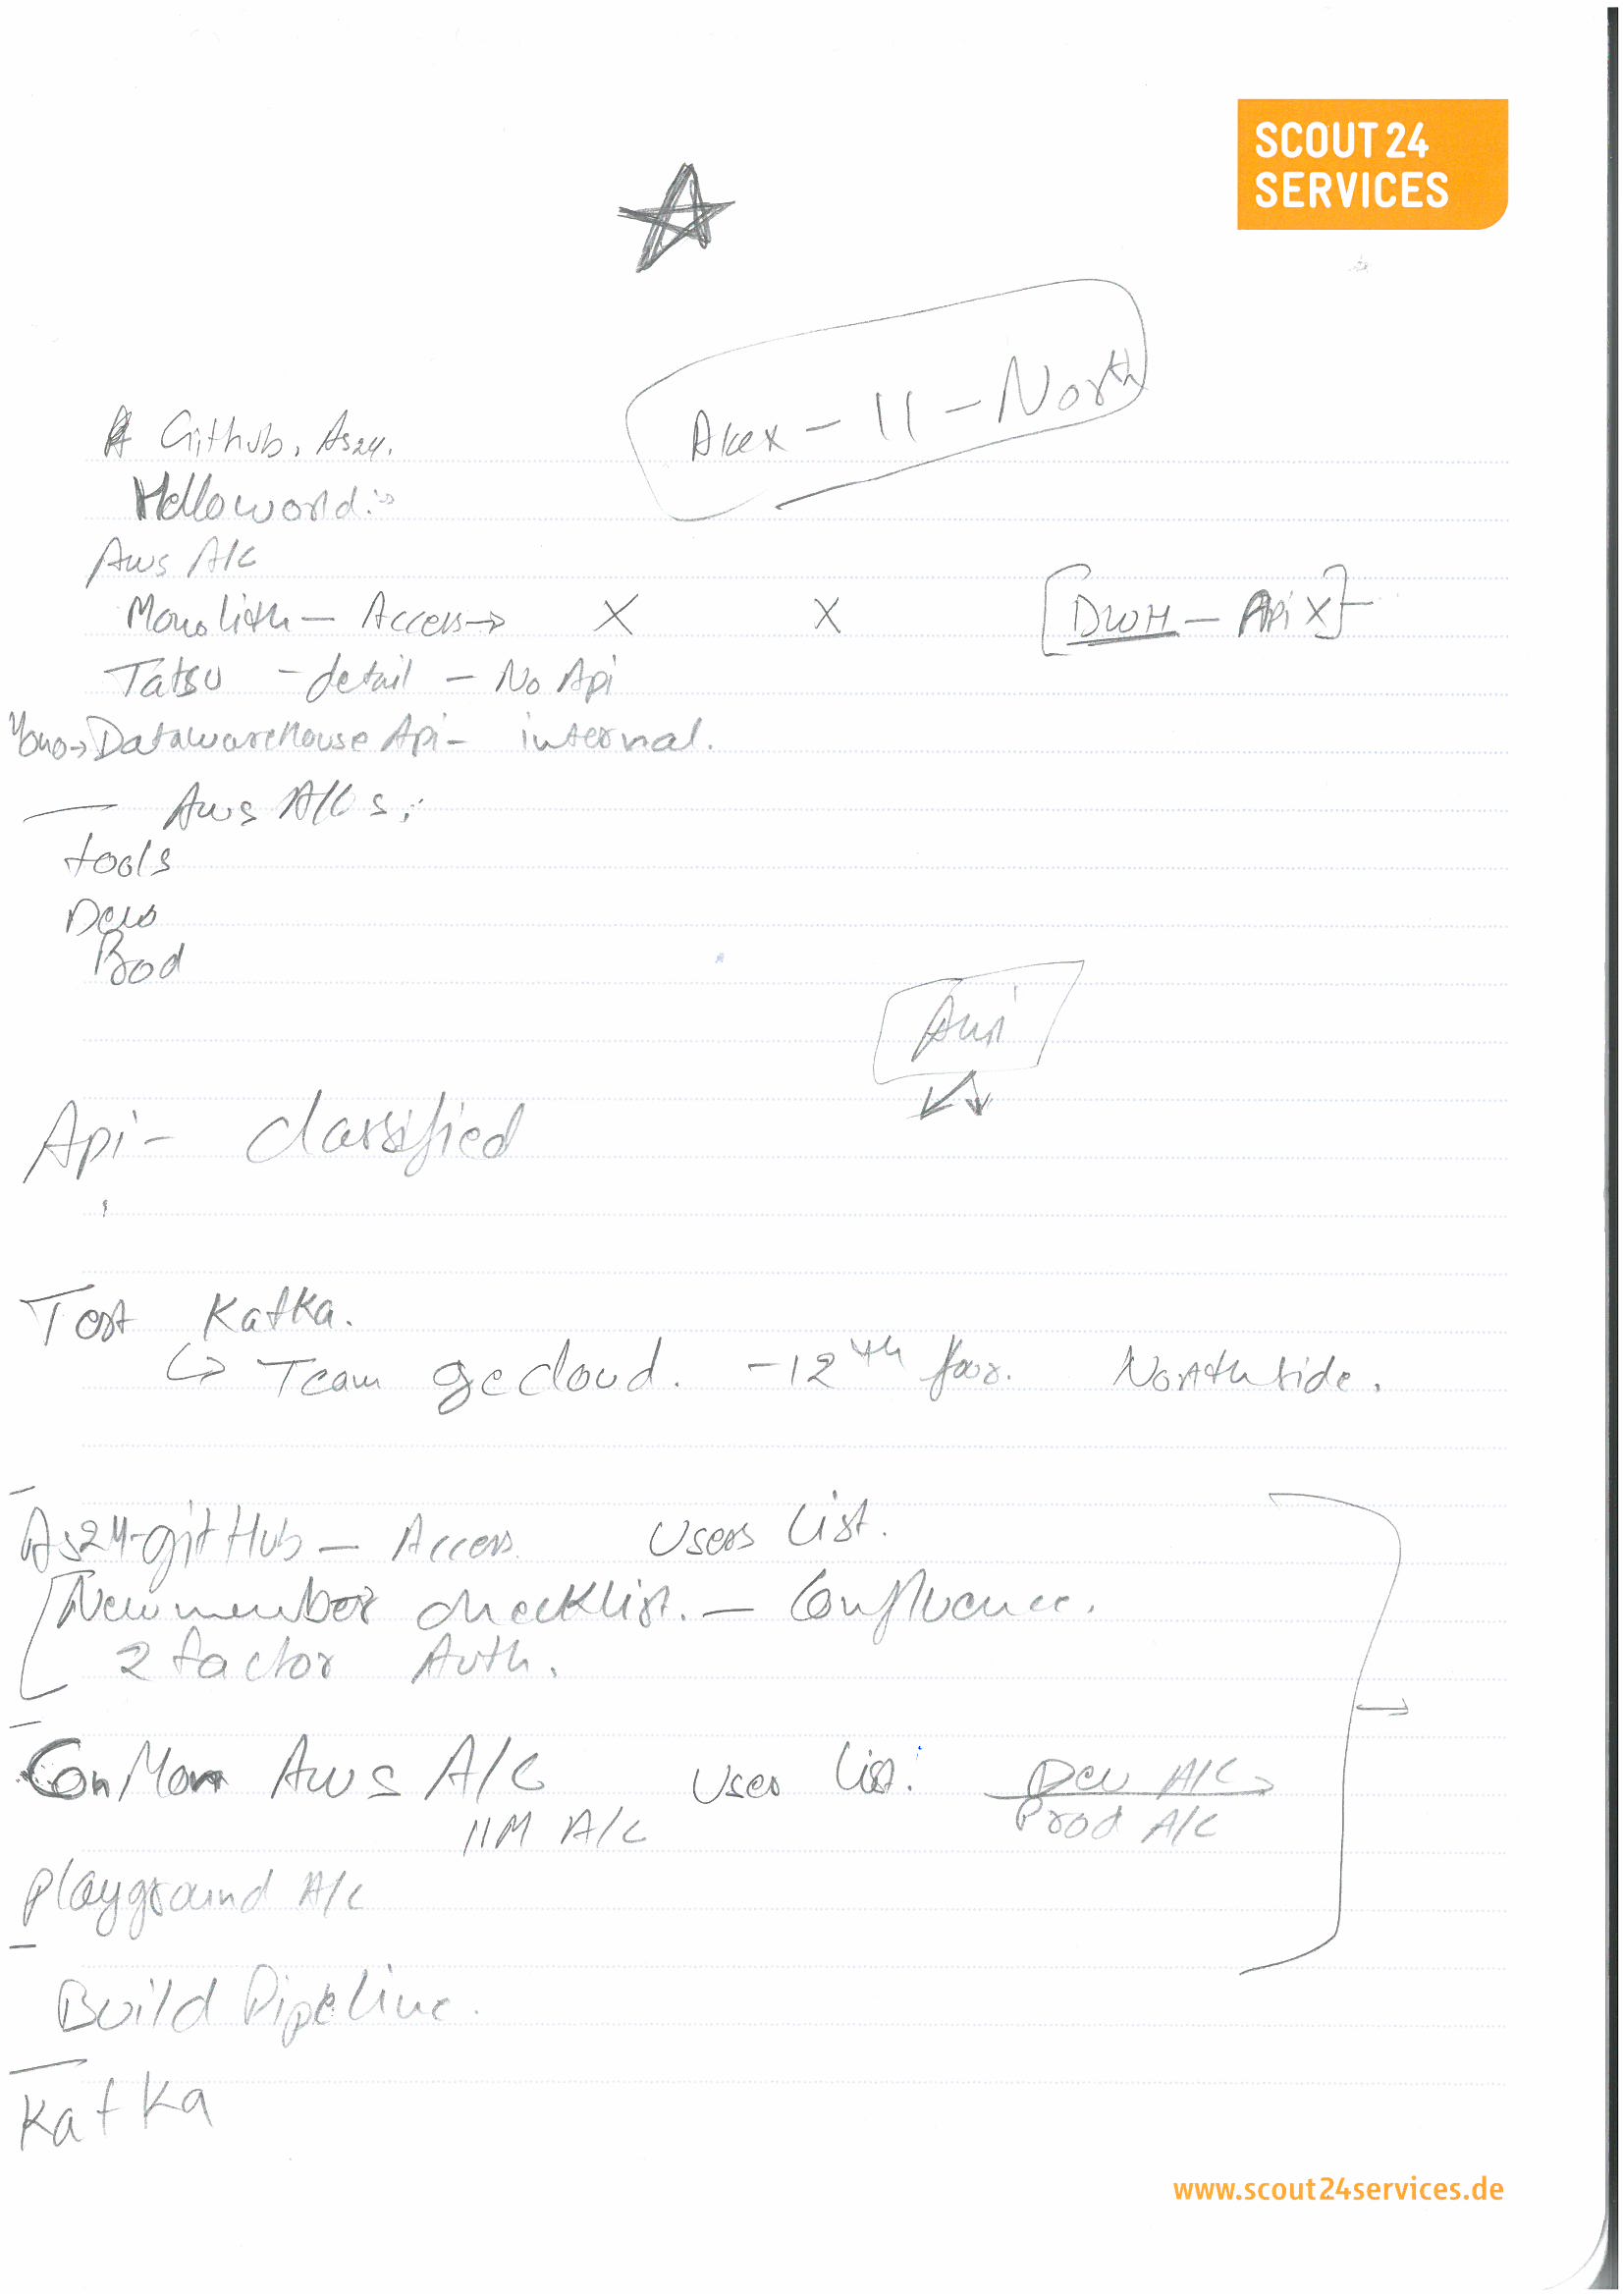 SCOUT 24
SERVICES
Alex - 11 - North
Github. As24.
Helloworld :-
Aws A/c
Monolith - Access → X X [DWH - Api X]-
Tatsu - detail - No Api
→ Datawarehouse Api - internal.
— Aws A/c s :
tools
Dev
Prod
Api
Api - classified
Test Kafka.
↳ Team gecloud. - 12th floor. North side.
As24-gitHub - Access Users List.
[ New member checklist. - Confluence.
2 factor Auth.
ConMon Aws A/C User List: Dev A/C
IIM A/C Prod A/C
Playground A/c
Build Pipeline.
Kafka
www.scout24services.de